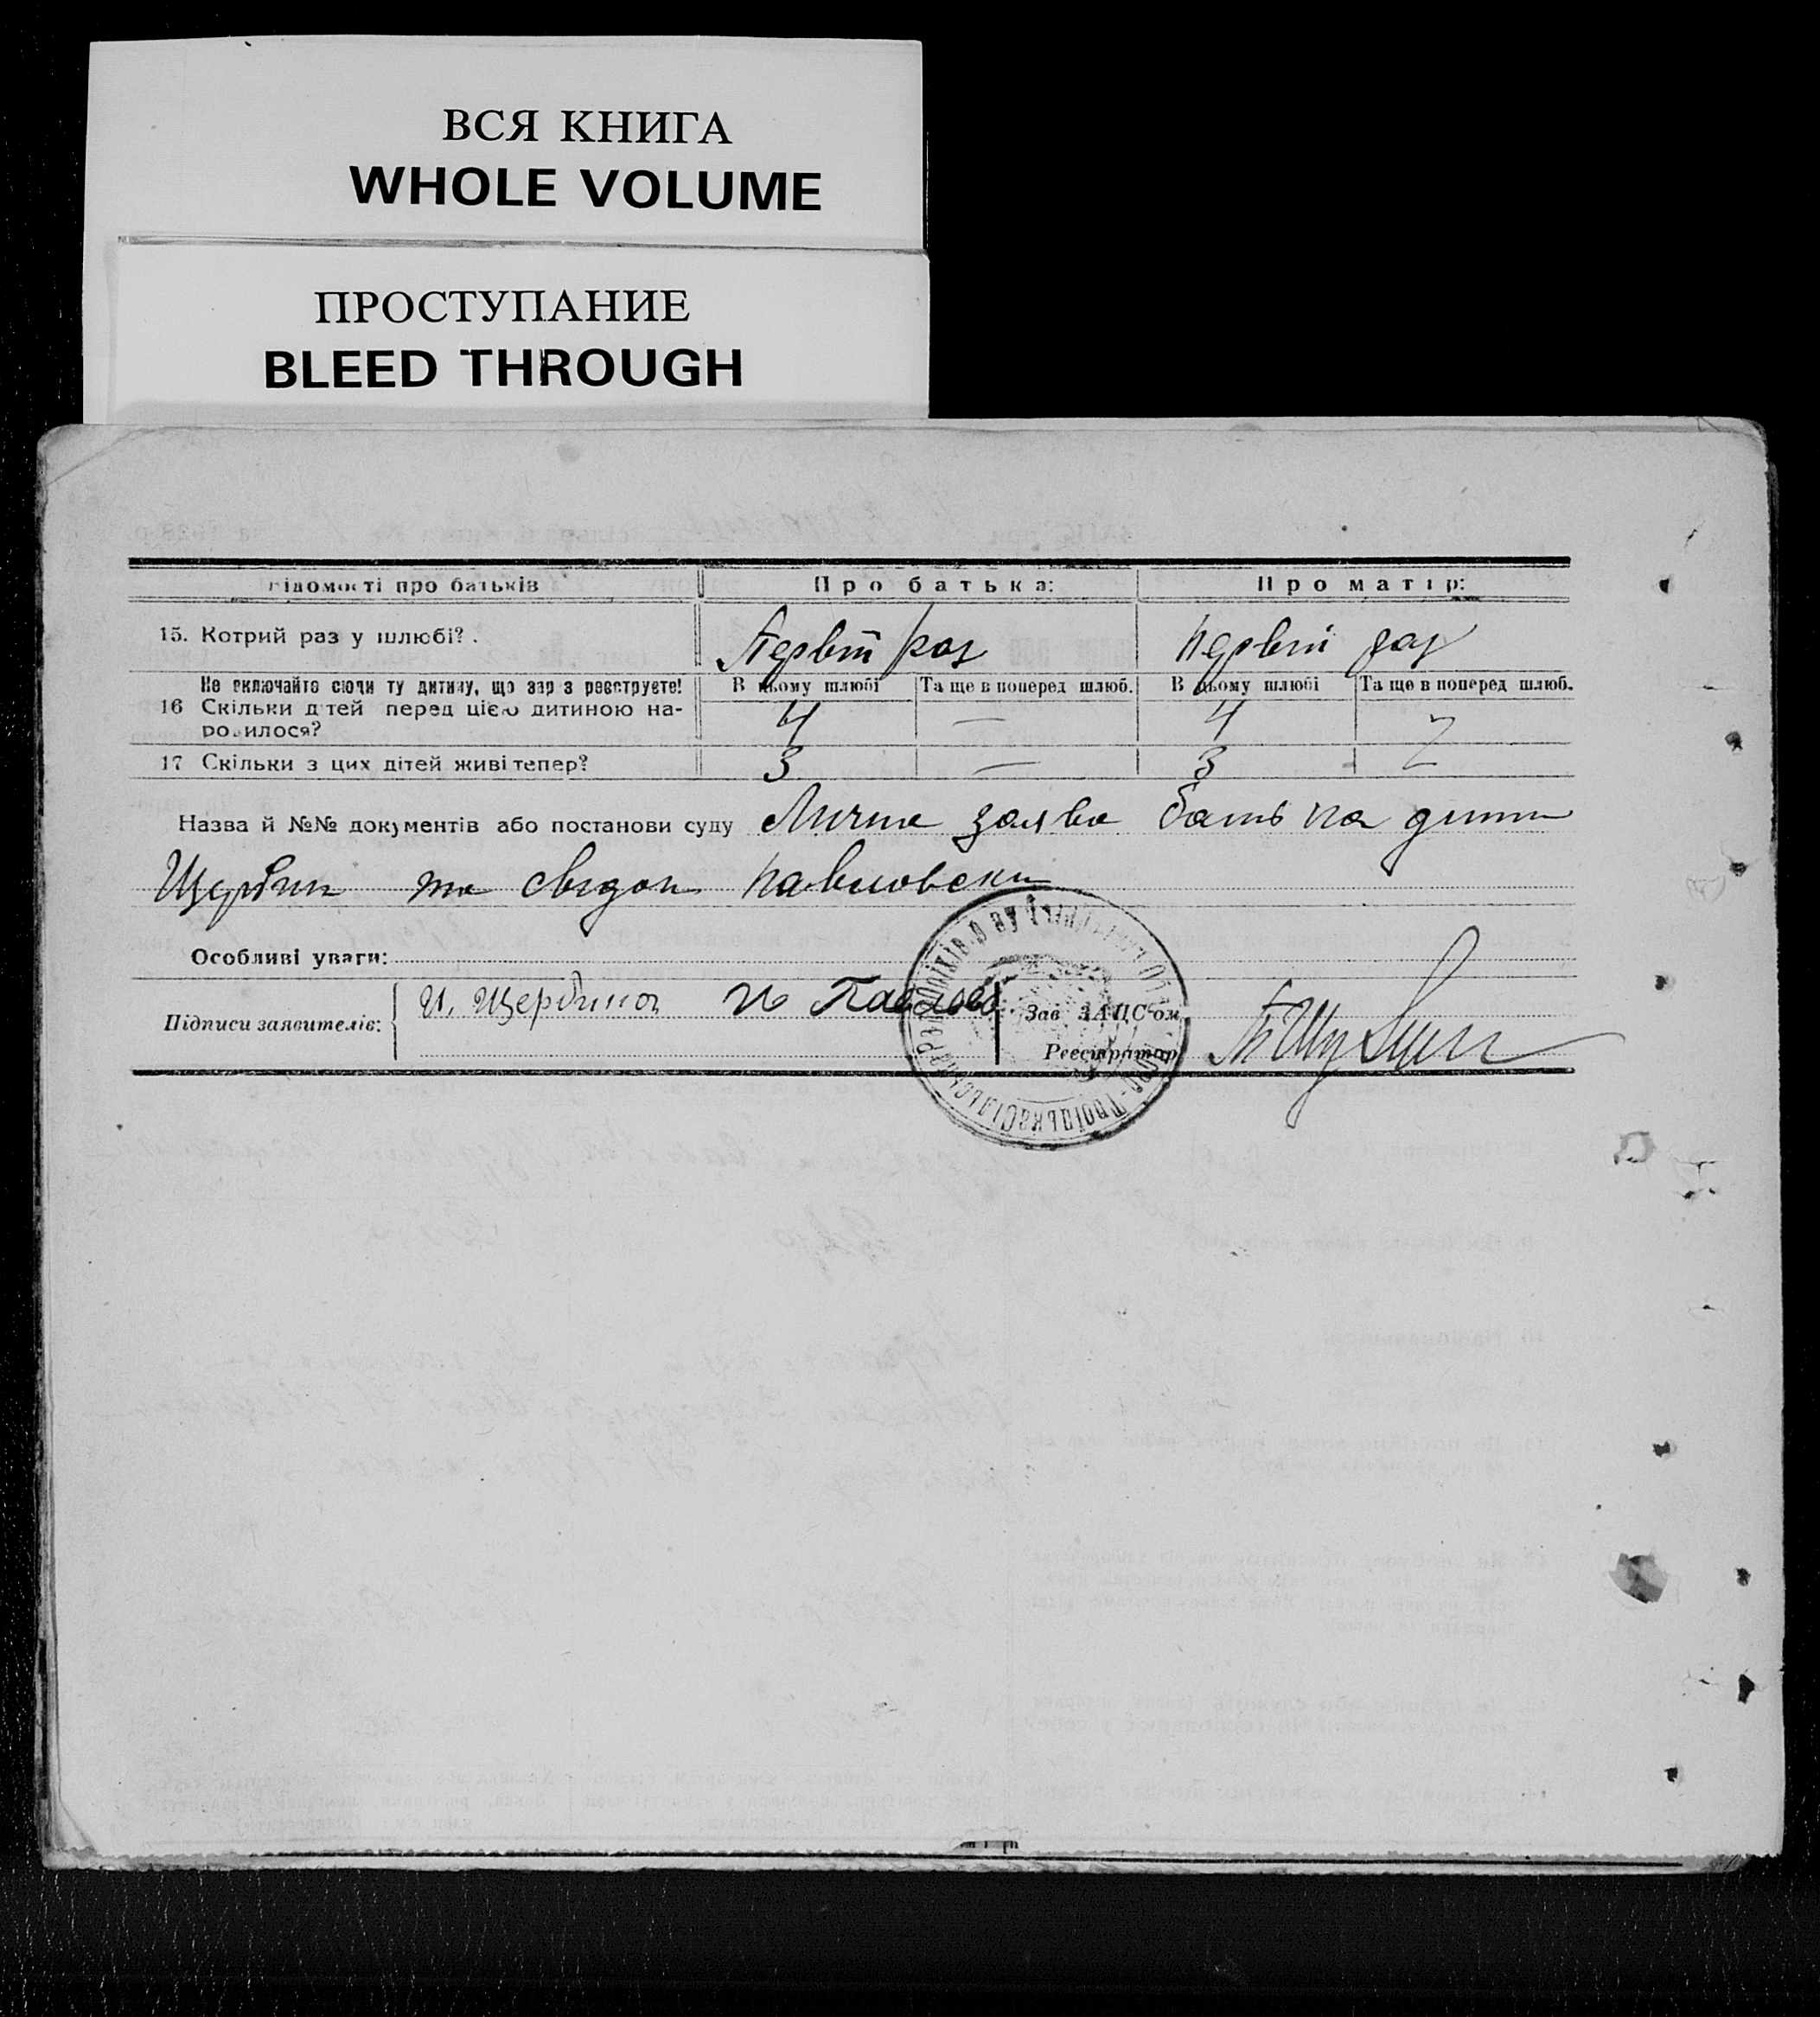 ВСЯ КНИГА
WHOLE VOLUME
ПРОСТУПАНИЕ
BLEED THROUGH
відомості про батьків Про батька: Про матір:
15. Котрий раз у шлюбі? . Первий раз Первий раз
Не включайте сюди ту дитину, що зараз реєструєте! В цьому шлюбі Та ще в поперед шлюб. В цьому шлюбі Та ще в поперед шлюб.
16 Скільки дітей перед цією дитиною на- 4 — 4
родилося?
17 Скільки з цих дітей живі тепер? 3 — 3
Назва й №№ документів або постанови суду Лична заява батька дити
Щербин та свідок Павловски
Особливі уваги:
Підписи заявителів: И. Щербина Зав ЗАЦС'ом
Реєстратор